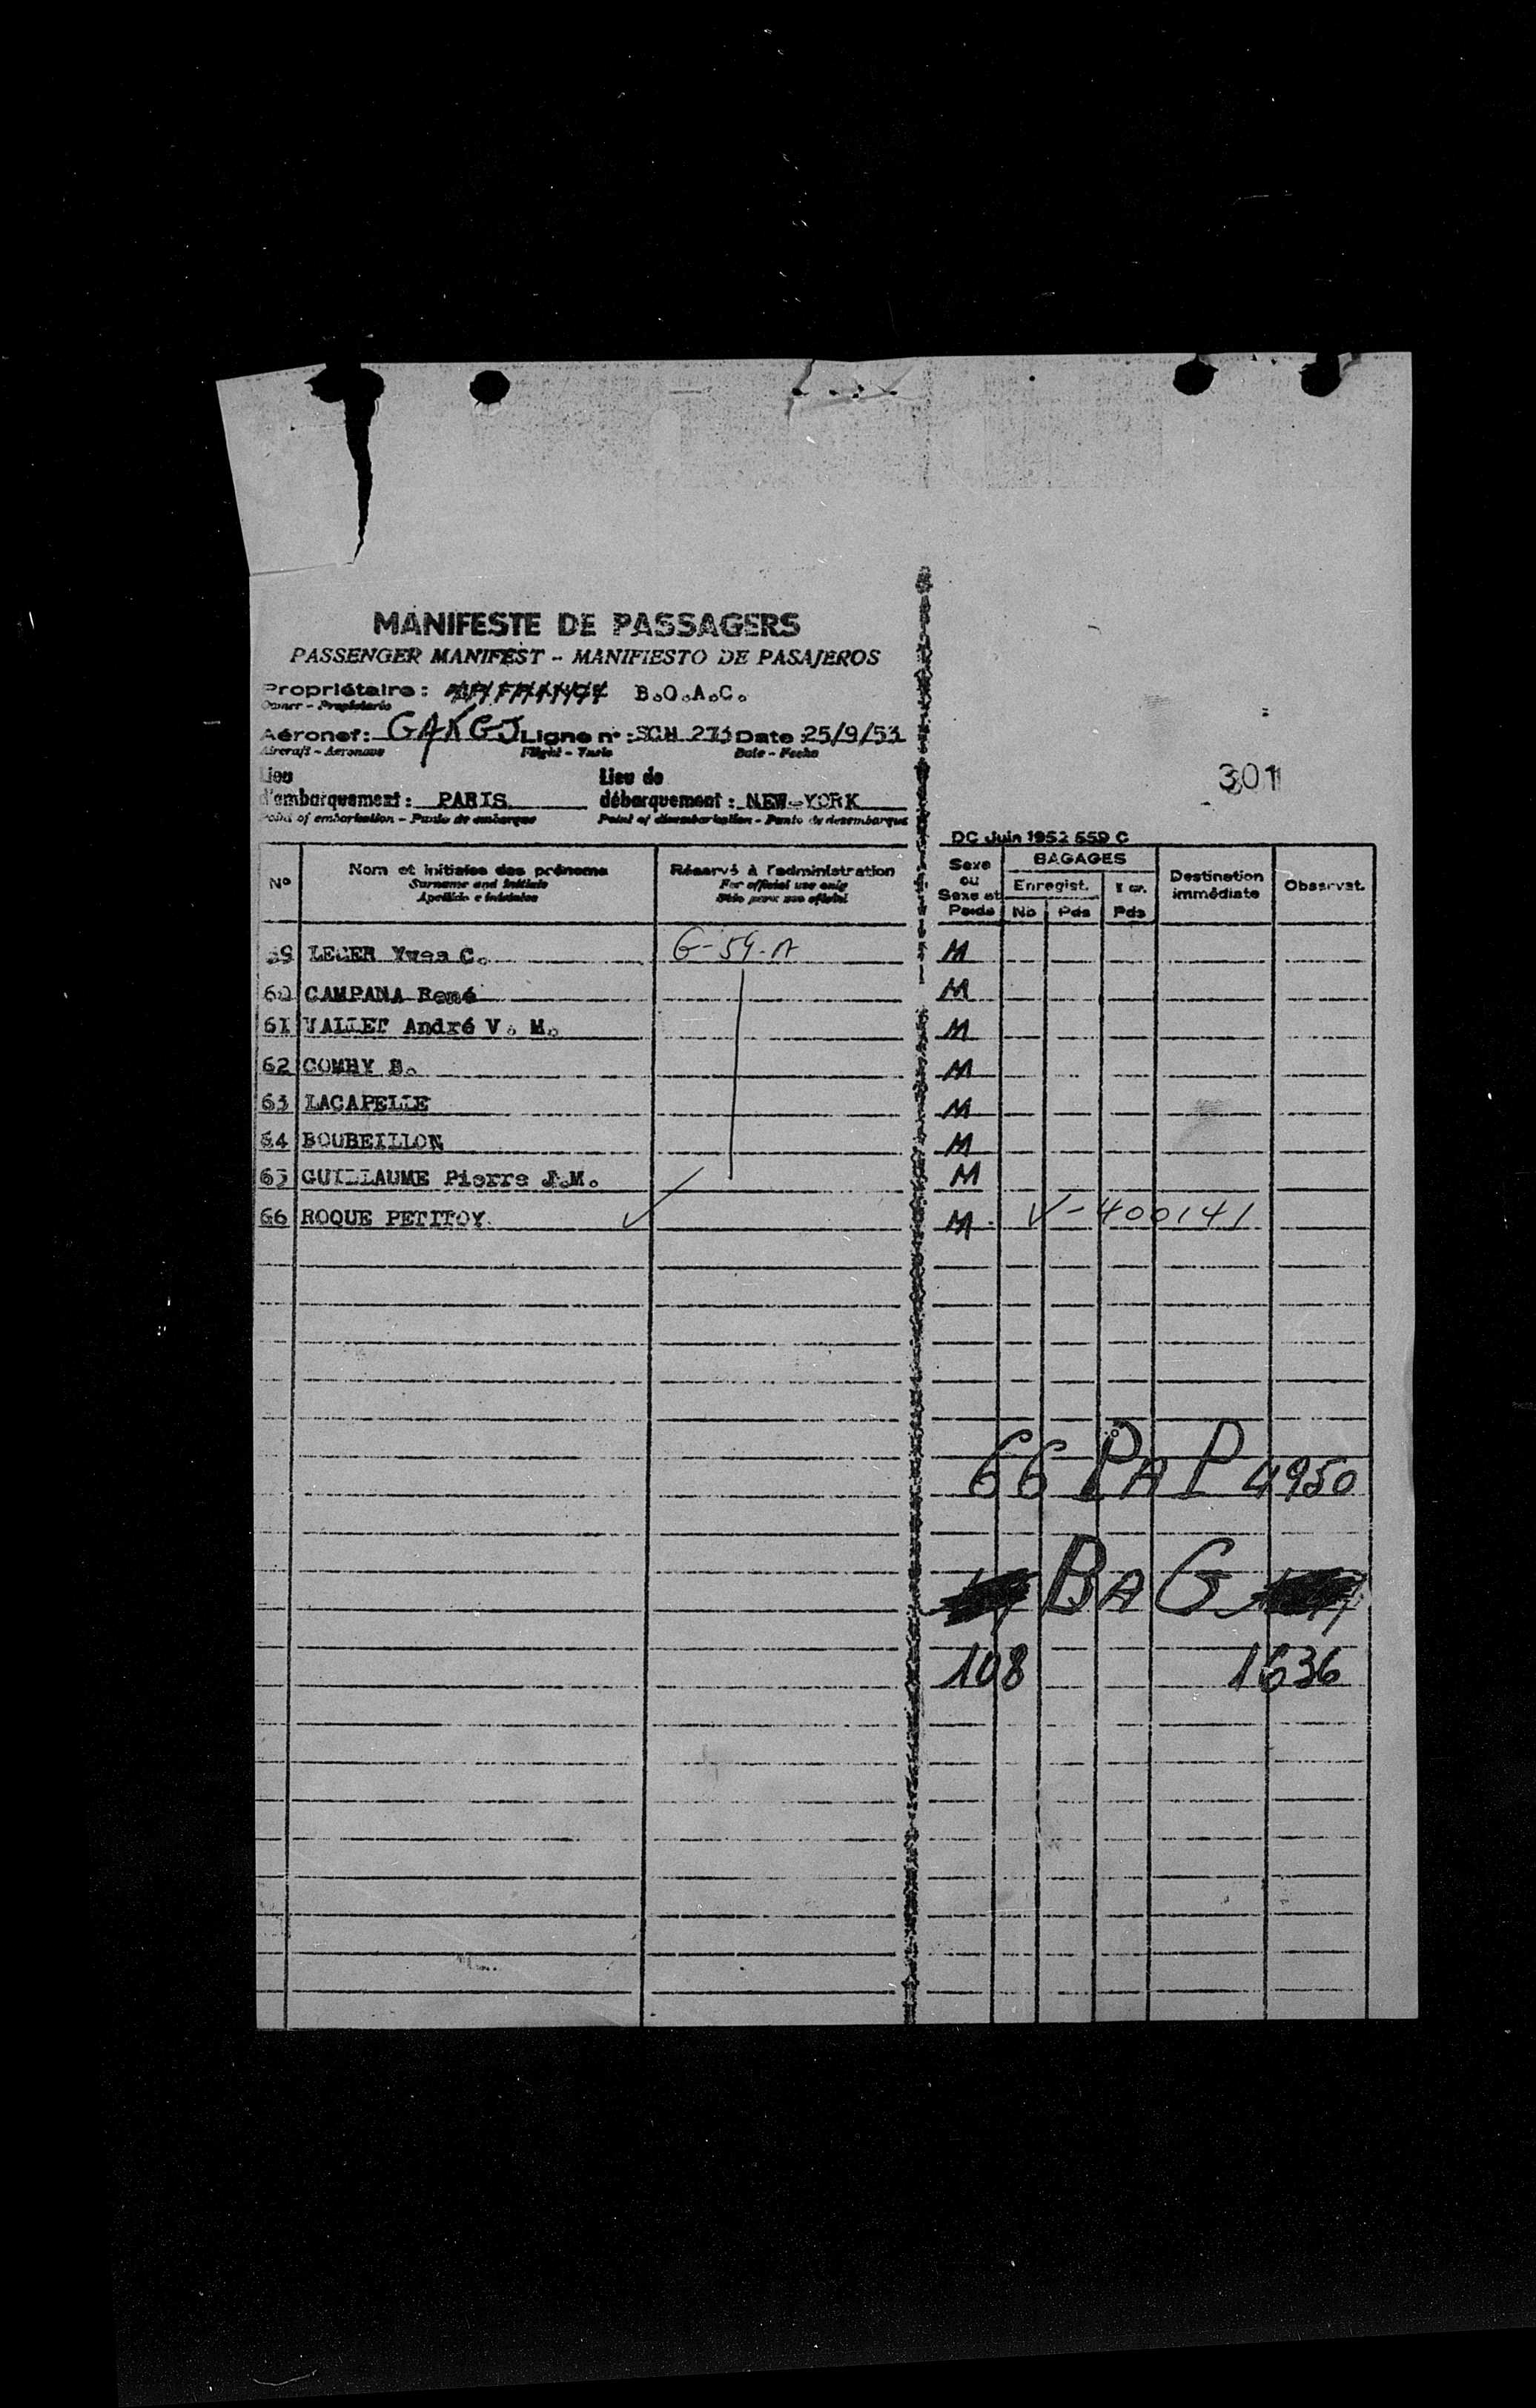 MANIFESTE DE PASSAGERS
PASSENGER MANIFEST - MANIFIESTO DE PASAJEROS
Propriétaire : B.O.A.C.
Owner - Propietario
Aéronef : GAKGJ Ligne n° : SCH 273 Date : 25/9/53
Aircraft - Aeronave Flight - Date - Fecha
301
Lieu d'embarquement : PARIS Lieu de débarquement : NEW-YORK
Point of embarkation - Punto de embarque Point of disembarkation - Punto de desembarque
DC Juin 1952 559 C
N° Nom et initiales des prénoms Réservé à l'administration Sexe ou Sexe et Poids BAGAGES Destination immédiate Observat.
Surname and initials For official use only Enregist.
Apellido e iniciales Sitio para uso oficial No Pds Pds
59 LEGER Yves C. G-54-A M
60 CAMPANA René M
61 VALLET André V. M. M
62 COMBY B. M
63 LACAPELLE M
64 BOUBEILLON M
65 GUILLAUME Pierre J.M. M
66 ROQUE PETITOY M V-400141
66 PAP 4950
BAG
108 1636